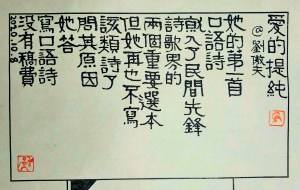 愛的提純
@劉傲夫
她的第一首
口語詩
就入了民間先鋒
詩歌界的
兩個重要選本
但她再也不寫
該類詩了
問其原因
她答
寫口語詩
没有稿費